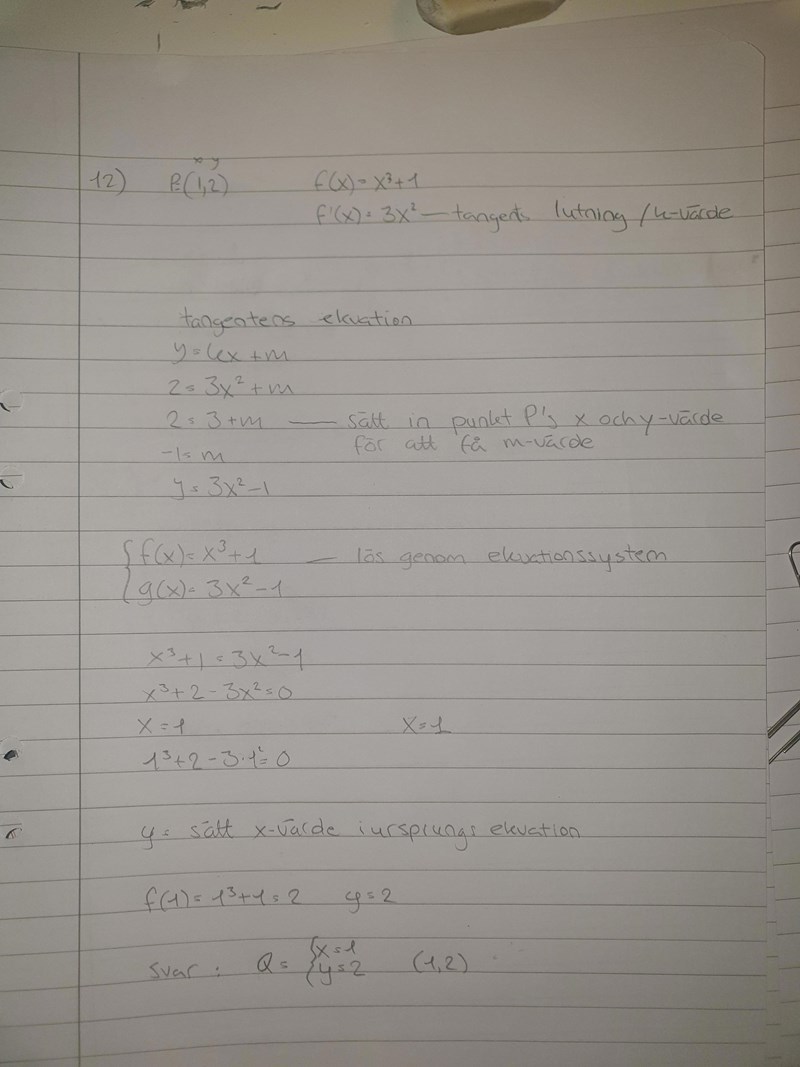 x y
12) P:(1,2) f(x)=x³+1
f'(x)=3x² — tangents lutning /k-värde
tangentens ekvation
y=kx+m
2=3x²+m
2=3+m — sätt in punkt P's x och y-värde
för att få m-värde
-1=m
y=3x²-1
{f(x)=x³+1 — lös genom ekvationssystem
{g(x)=3x²-1
x³+1=3x²-1
x³+2-3x²=0
x=1 x=1
1³+2-3·1²=0
y= sätt x-värde i ursprungs ekvation
f(1)=1³+1=2 y=2
svar: Q= {x=1
{y=2 (1,2)